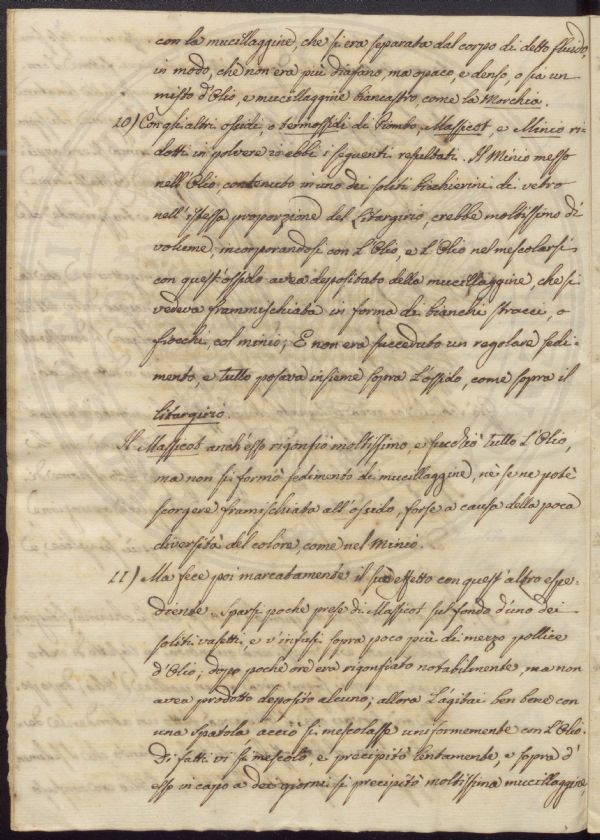 con la mucillaggine, che si era separata dal corpo di detto fluido,
in modo, che non era più diafano, ma opaco, e denso, o sia un
misto d'Olio, e mucillaggine biancastro, come la Morchia.
10) Con gli altri ossidi, o termossidi di Piombo, Massicot, e Minio ri-
dotti in polvere io ebbi i seguenti resultati. Il Minio messo
nell'Olio, contenuto in uno dei soliti bicchierini di vetro
nell'istessa proporzione del Litargirio, crebbe moltissimo di
volume, incorporandosi con l'Olio, e l'Olio nel mescolarsi
con quest'ossido avea depositato della mucillaggine, che si
vedeva frammischiata in forma di bianchi stracci, o
fiocchi, col minio; E non era succeduto un regolare sedi-
mento, e tutto posava insieme sopra l'ossido, come sopra il
litargirio.
Il Massicot anch'esso rigonfiò moltissimo, e succhiò tutto l'Olio,
ma non si formò sedimento di mucillaggine, nè se ne potè
scorgere framischiata all'ossido, forse a causa della poca
diversità del colore, come nel Minio.
11) Ma fece poi marcatamente il suo effetto con quest'altro espe-
diente. Sparsi poche prese di Massicot sul fondo d'uno dei
soliti vasetti, e v'infusi sopra poco più di mezzo pollice
d'Olio; dopo poche ore era rigonfiato notabilmente, ma non
avea prodotto deposito alcuno; allora l'agitai ben bene con
una spatola acciò si mescolasse uniformemente con l'Olio.
Di fatti vi si mescolò, e precipitò lentamente, e sopra d'
esso in capo a dei giorni si precipitò moltissima mucillaggine,